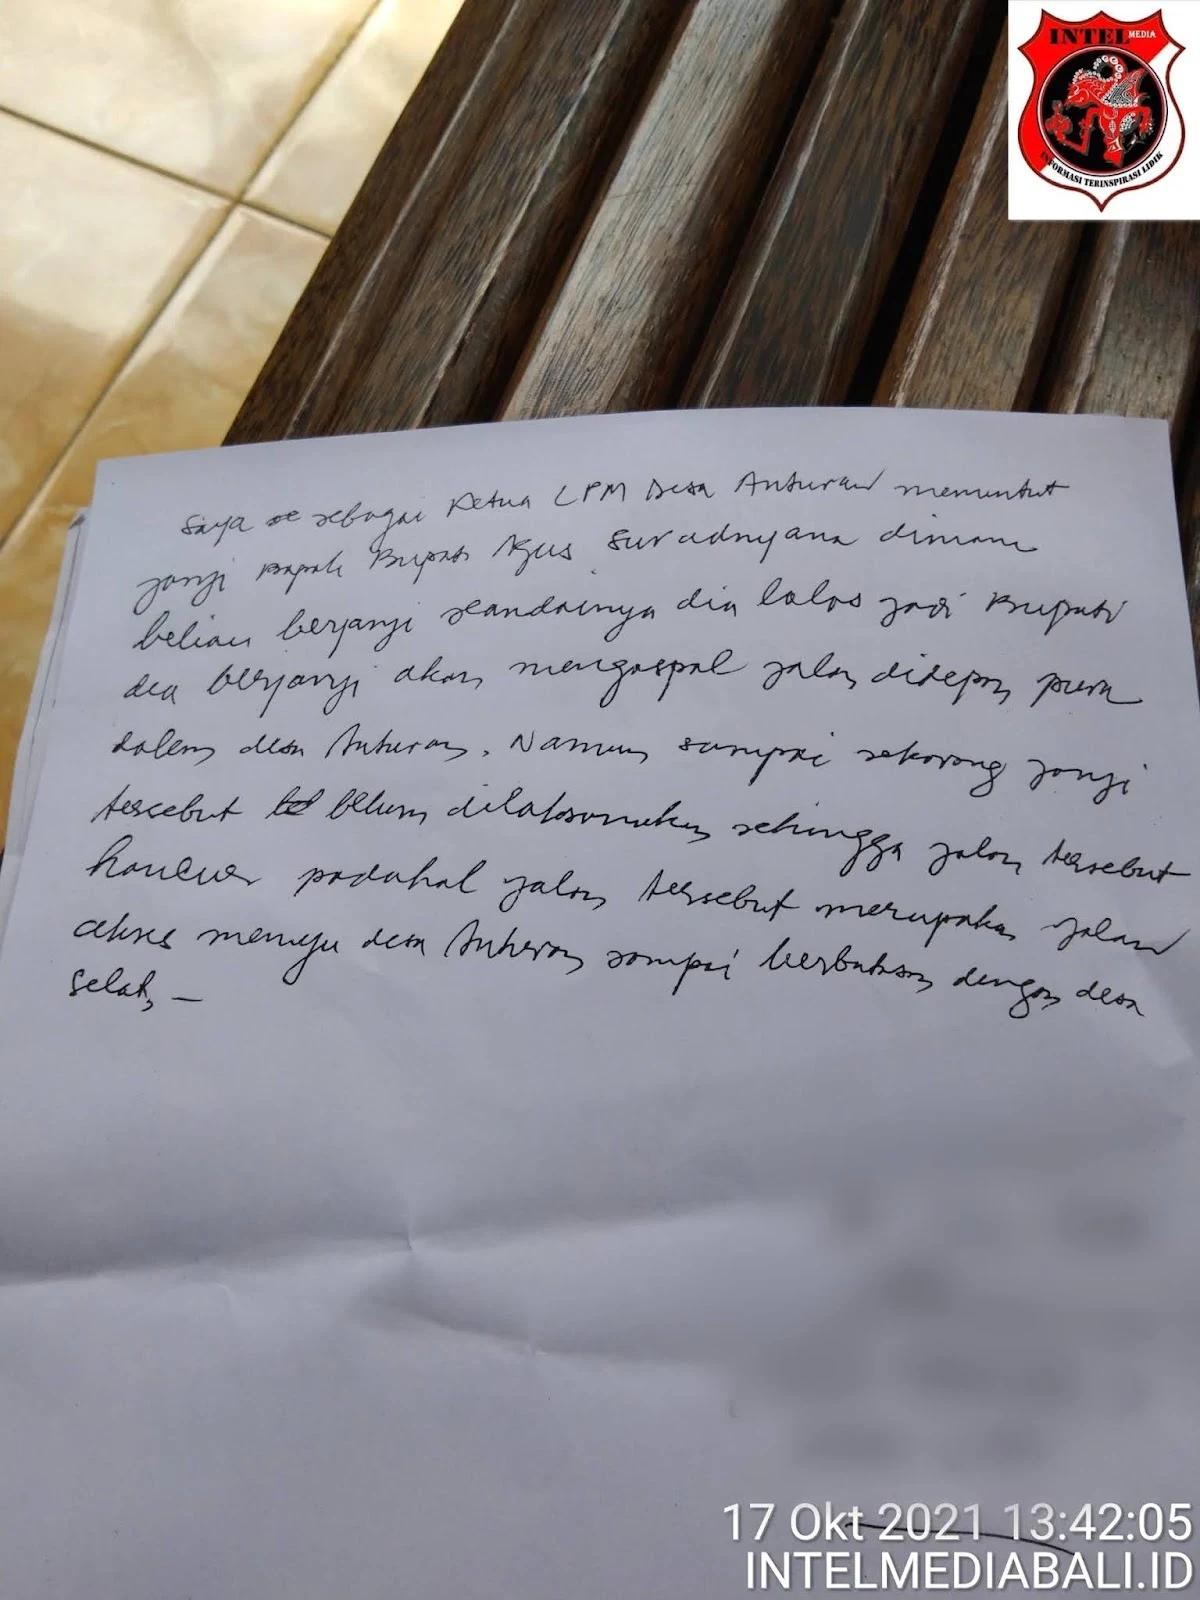 INTEL MEDIA
INFORMASI TERINSPIRASI LIDIK
Saya se sebagai Ketua LPM Desa Anturan menuntut
janji Bapak Bupati Agus Suradnyana dimana
beliau berjanji seandainya dia lolos jadi Bupati
dia berjanji akan mengaspal jalan didepan pura
dalem desa Anturan. Namun sampai sekarang janji
tersebut belum dilaksanakan sehingga jalan tersebut
hancur padahal jalan tersebut merupakan jalan
akses menuju desa Anturan sampai berbatasan dengan desa
Selat, —
17 Okt 2021 13:42:05
INTELMEDIABALI.ID